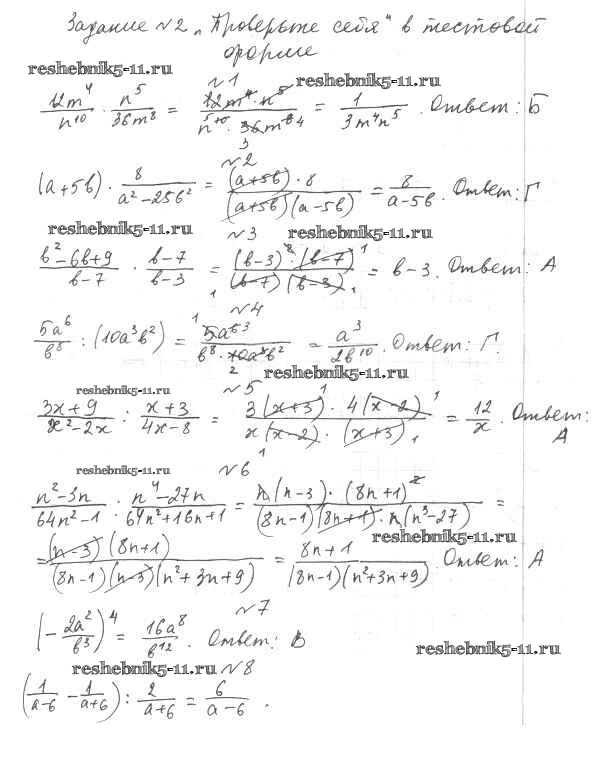 Задание №2 „Проверьте себя" в тестовой
форме
reshebnik5-11.ru
№1 reshebnik5-11.ru
12m⁴/n¹⁰ · n⁵/36m⁸ = 12m⁴ · n⁵/n⁵ ¹⁰ · 36m⁸ 4 3 = 1/3m⁴n⁵. Ответ: Б
№2
(a+5b) · 8/a²−25b² = (a+5b) · 8/(a+5b)(a−5b) = 8/a−5b. Ответ: Г
reshebnik5-11.ru №3 reshebnik5-11.ru
b²−6b+9/b−7 · b−7/b−3 = (b−3)² · (b−7) 1/1 (b−7)(b−3) 1 = b−3. Ответ: А
№4
5a⁶/b⁸ : (10a³b²) = 1 5a⁶ ³/b⁸ · 10a³b² 2 = a³/2b¹⁰. Ответ: Г.
reshebnik5-11.ru
reshebnik5-11.ru №5
3x+9/x²−2x : x+3/4x−8 = 3(x+3) 1 · 4(x−2) 1/x(x−2) 1 · (x+3) 1 = 12/x. Ответ:
А
reshebnik5-11.ru №6
n²−3n/64n²−1 : n⁴−27n/64n²+16n+1 = n(n−3) · (8n+1)²/(8n−1)(8n+1) · n(n³−27) =
reshebnik5-11.ru
= (n−3)(8n+1)/(8n−1)(n−3)(n²+3n+9) = 8n+1/(8n−1)(n²+3n+9). Ответ: А
№7
(−2a²/b³)⁴ = 16a⁸/b¹². Ответ: В
reshebnik5-11.ru
reshebnik5-11.ru №8
(1/a−6 − 1/a+6) : 2/a+6 = 6/a−6.